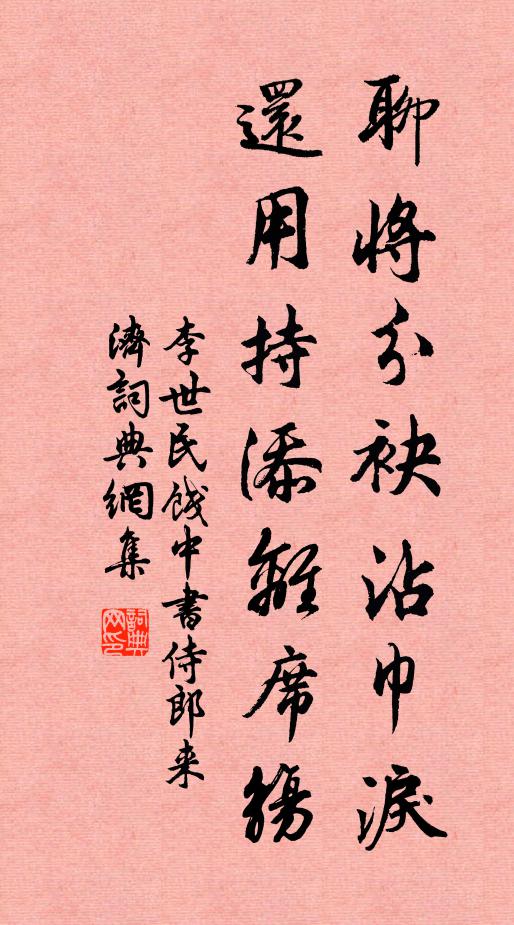 聊將分袂沾巾淚
還用持添離席觴
李世民餞中書侍郎来
濟詞典網集
詞典
网印